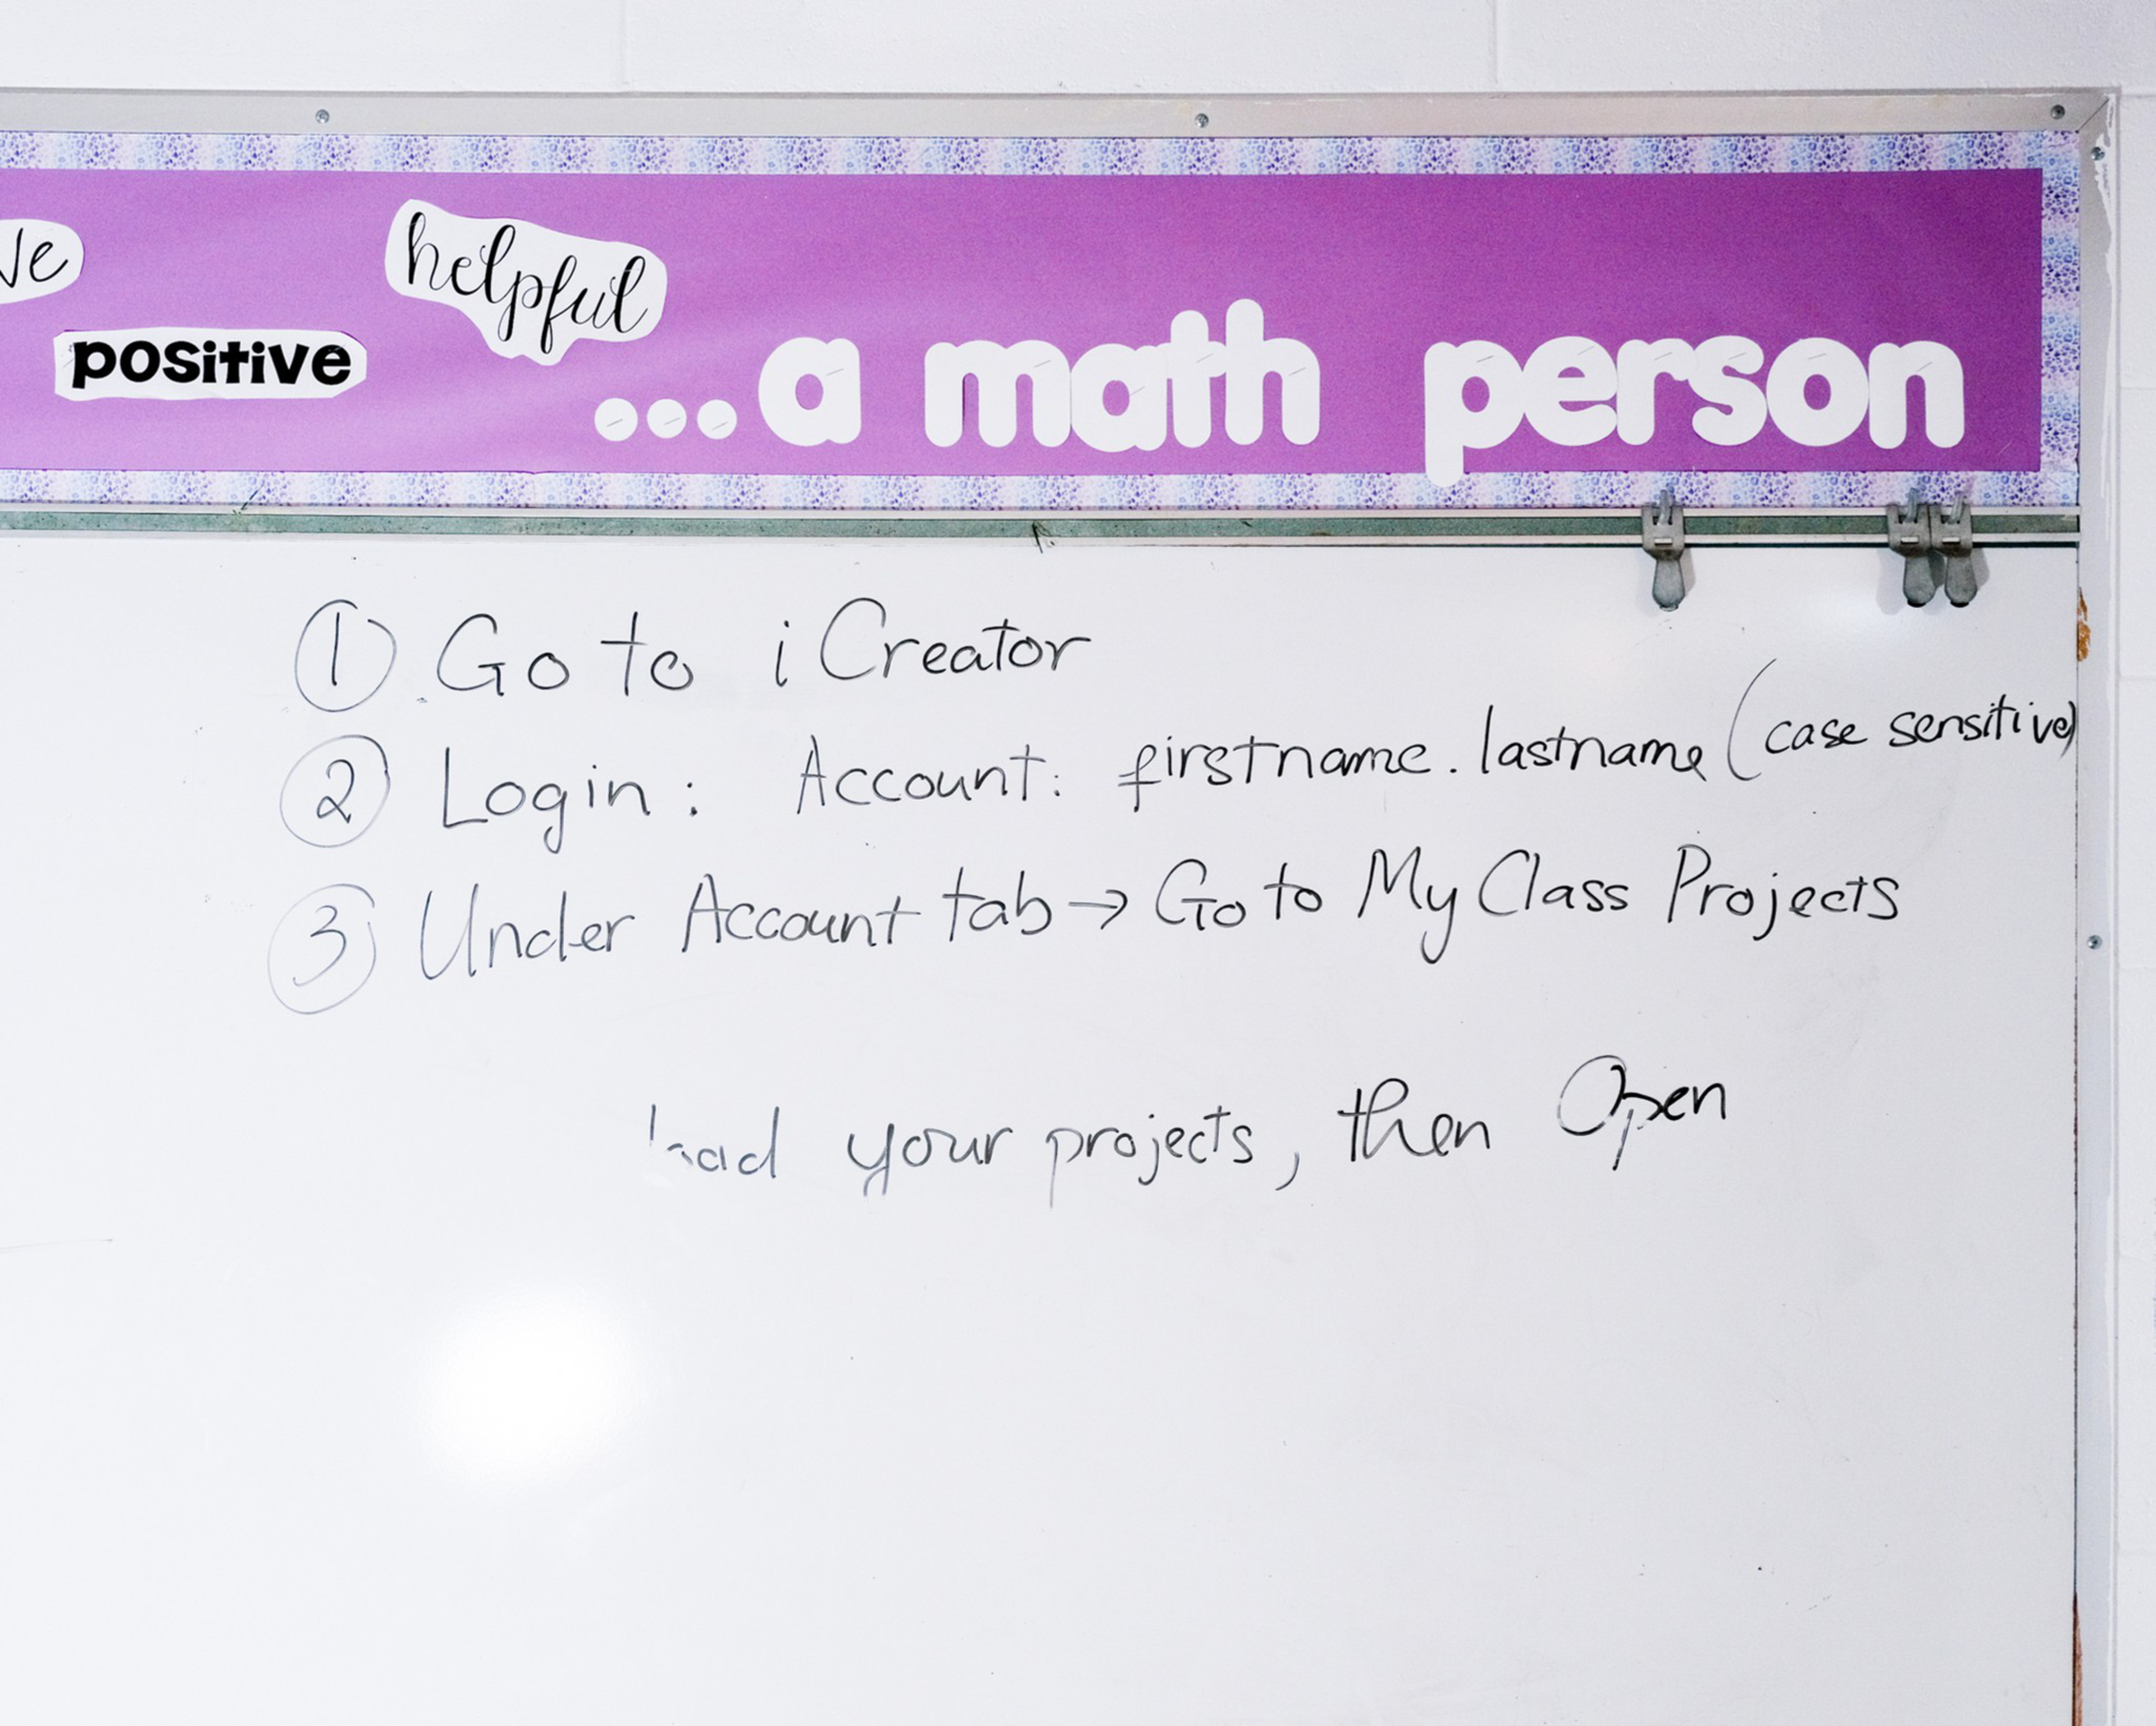 helpful
positive
...a math person
① Go to iCreator
② Login: Account: firstname.lastname (case sensitive)
③ Under Account tab → Go to My Class Projects
your projects, then Open